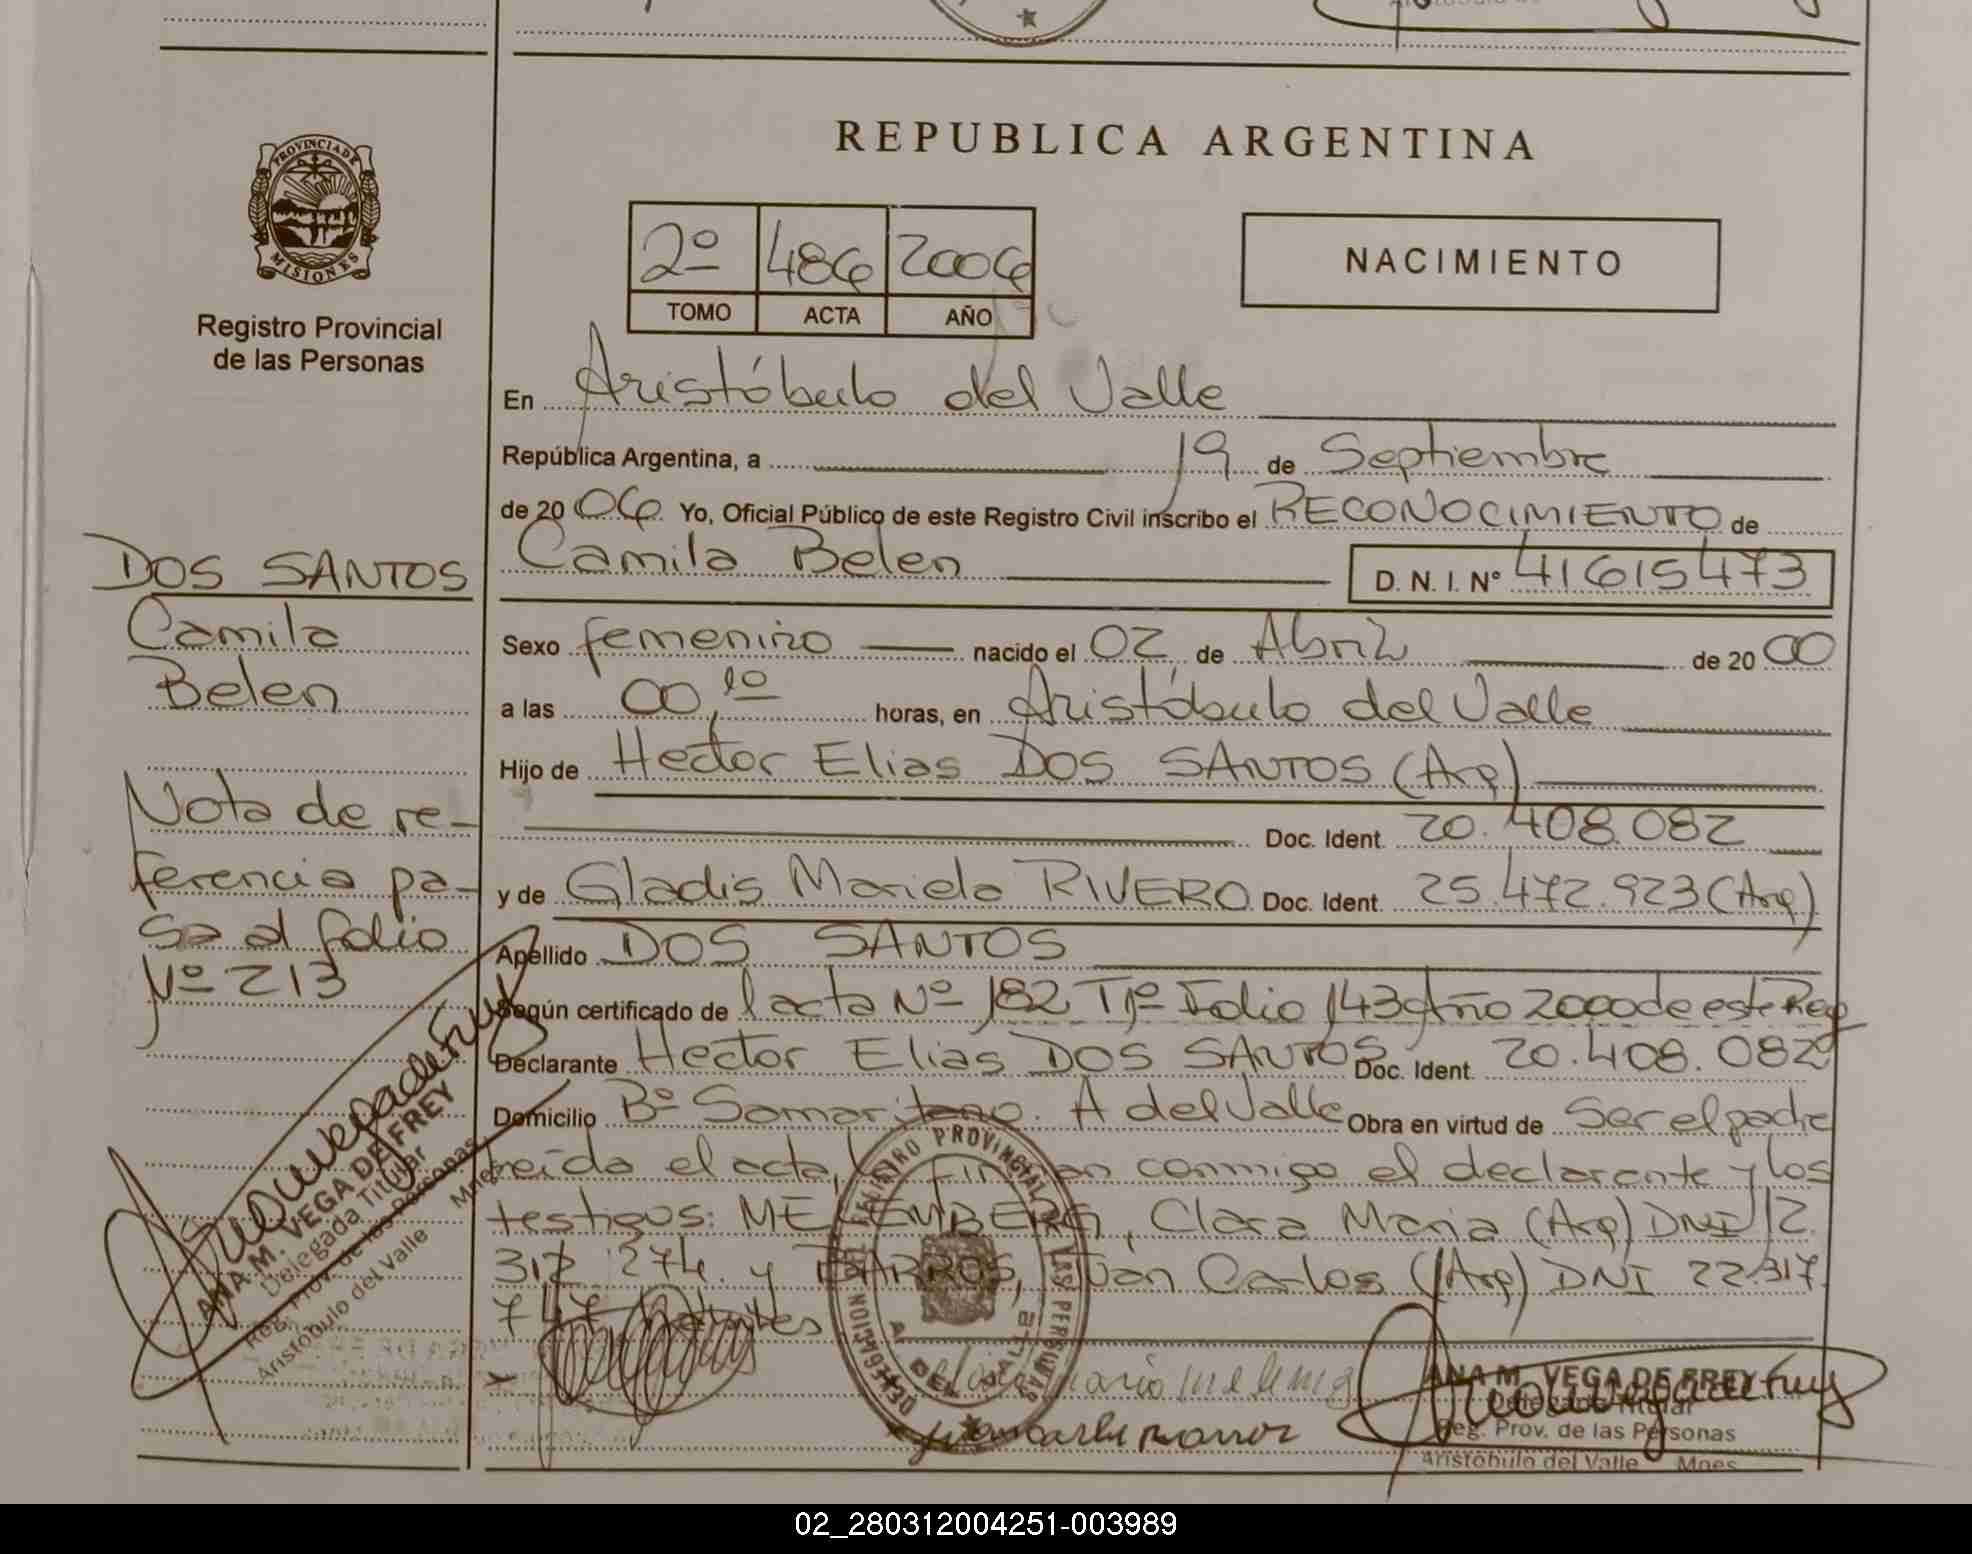 REPUBLICA ARGENTINA
PROVINCIA DE
MISIONES
Registro Provincial
de las Personas
2º 486 2006
TOMO ACTA AÑO
NACIMIENTO
En Aristóbulo del Valle
República Argentina, a 19 de Septiembre
de 2006 Yo, Oficial Público de este Registro Civil inscribo el RECONOCIMIENTO de
Camila Belen D. N. I. Nº 41615473
Sexo femenino nacido el 02 de Abril de 20 00
a las 00,10 horas, en Aristóbulo del Valle
Hijo de Hector Elias DOS SANTOS (Arg)
Doc. Ident. 20.408.082
y de Gladis Mariela RIVERO Doc. Ident. 25.472.923 (Arg)
Apellido DOS SANTOS
Según certificado de acta Nº 182 Tº 1º Folio 143 Año 2000 de este Reg
Declarante Hector Elias DOS SANTOS Doc. Ident. 20.408.082
Domicilio Bº Samaritano. A del Valle Obra en virtud de Ser el padre
Leída el acta, la firman conmigo el declarante y los
testigos: Clara Maria (Arg) DNI 12.
317.274. y BARROS, Juan Carlos (Arg) DNI 22.317.
747
DOS SANTOS
Camila
Belen
Nota de re-
ferencia pa-
sa al folio
Nº 213
ANA M. VEGA DE FREY
Delegada Titular
Reg. Prov. de las Personas
Aristóbulo del Valle Mnes
REGISTRO PROVINCIAL DE LAS PERSONAS
DELEGACION
A. DEL VALLE
ANA M. VEGA DE FREY
Delegada Titular
Reg. Prov. de las Personas
Aristóbulo del Valle Mnes
02_280312004251-003989